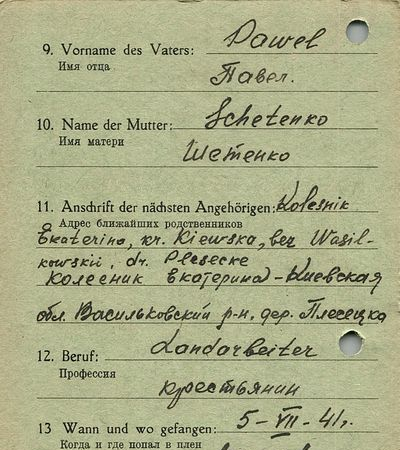 Pawel
9. Vorname des Vaters:
Имя отца
Павел.
10. Name der Mutter: Schetenko
Имя матери
Шетенко
11. Anschrift der nächsten Angehörigen: Kolesnik
Адрес ближайших родственников
Ekaterina, kr. Kiewska, bez Wasil-
kowskii, dr. Plesecke
Колесник Екатерина - Киевская
обл. Васильковский р-н, дер. Плесецка
12. Beruf: Landarbeiter
Профессия
крестьянин
13 Wann und wo gefangen: 5-VII-41г.
Когда и где попал в плен